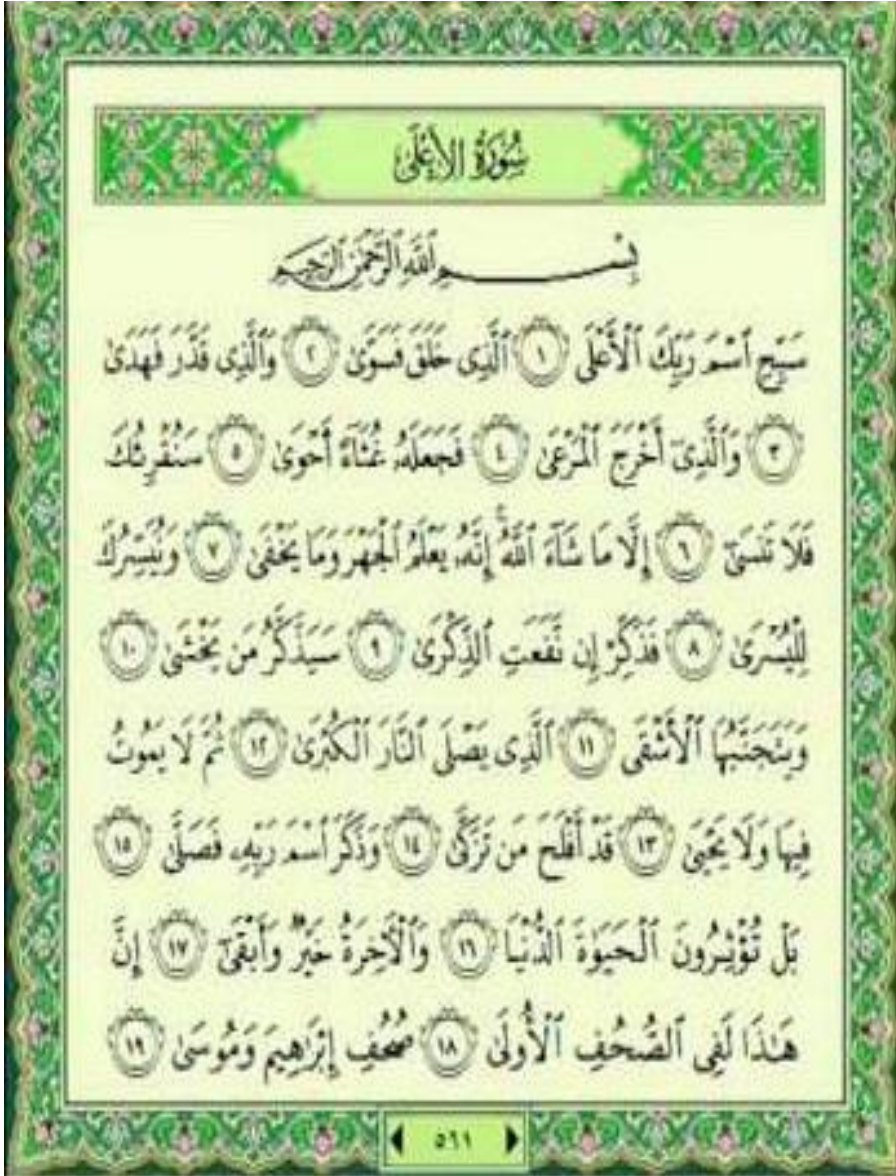 سُورَةُ الْأَعْلَىٰ
بِسْمِ ٱللَّهِ ٱلرَّحْمَٰنِ ٱلرَّحِيمِ
سَبِّحِ ٱسْمَ رَبِّكَ ٱلْأَعْلَى ١ ٱلَّذِى خَلَقَ فَسَوَّىٰ ٢ وَٱلَّذِى قَدَّرَ فَهَدَىٰ
٣ وَٱلَّذِىٓ أَخْرَجَ ٱلْمَرْعَىٰ ٤ فَجَعَلَهُۥ غُثَآءً أَحْوَىٰ ٥ سَنُقْرِئُكَ
فَلَا تَنسَىٰٓ ٦ إِلَّا مَا شَآءَ ٱللَّهُ ۚ إِنَّهُۥ يَعْلَمُ ٱلْجَهْرَ وَمَا يَخْفَىٰ ٧ وَنُيَسِّرُكَ
لِلْيُسْرَىٰ ٨ فَذَكِّرْ إِن نَّفَعَتِ ٱلذِّكْرَىٰ ٩ سَيَذَّكَّرُ مَن يَخْشَىٰ ١٠
وَيَتَجَنَّبُهَا ٱلْأَشْقَى ١١ ٱلَّذِى يَصْلَى ٱلنَّارَ ٱلْكُبْرَىٰ ١٢ ثُمَّ لَا يَمُوتُ
فِيهَا وَلَا يَحْيَىٰ ١٣ قَدْ أَفْلَحَ مَن تَزَكَّىٰ ١٤ وَذَكَرَ ٱسْمَ رَبِّهِۦ فَصَلَّىٰ ١٥
بَلْ تُؤْثِرُونَ ٱلْحَيَوٰةَ ٱلدُّنْيَا ١٦ وَٱلْءَاخِرَةُ خَيْرٌ وَأَبْقَىٰٓ ١٧ إِنَّ
هَٰذَا لَفِى ٱلصُّحُفِ ٱلْأُولَىٰ ١٨ صُحُفِ إِبْرَٰهِيمَ وَمُوسَىٰ ١٩
٥٦١